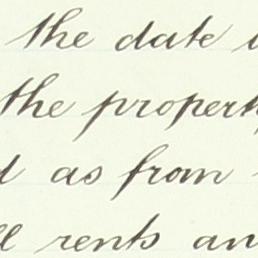 the date
the property
as from
rents an